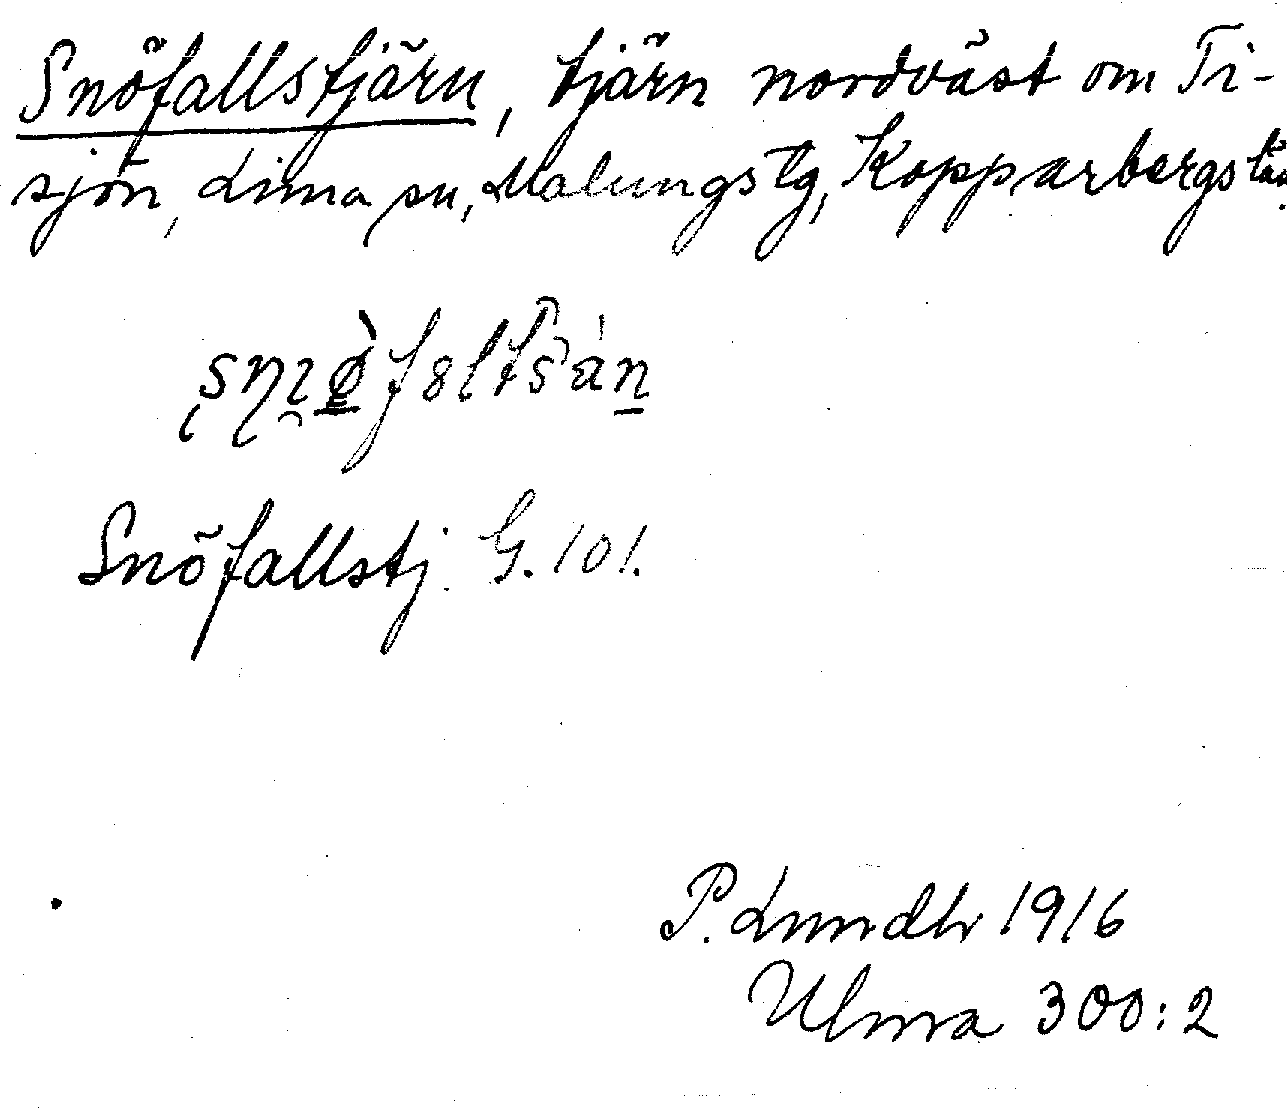 Snöfallstjärn, tjärn nordväst om Ti-
sjön, Lima sn, Malungs tg, Kopparbergs län.
Snöfallstj. G. 101.
P. Lundh 1916
Ulma 300:2